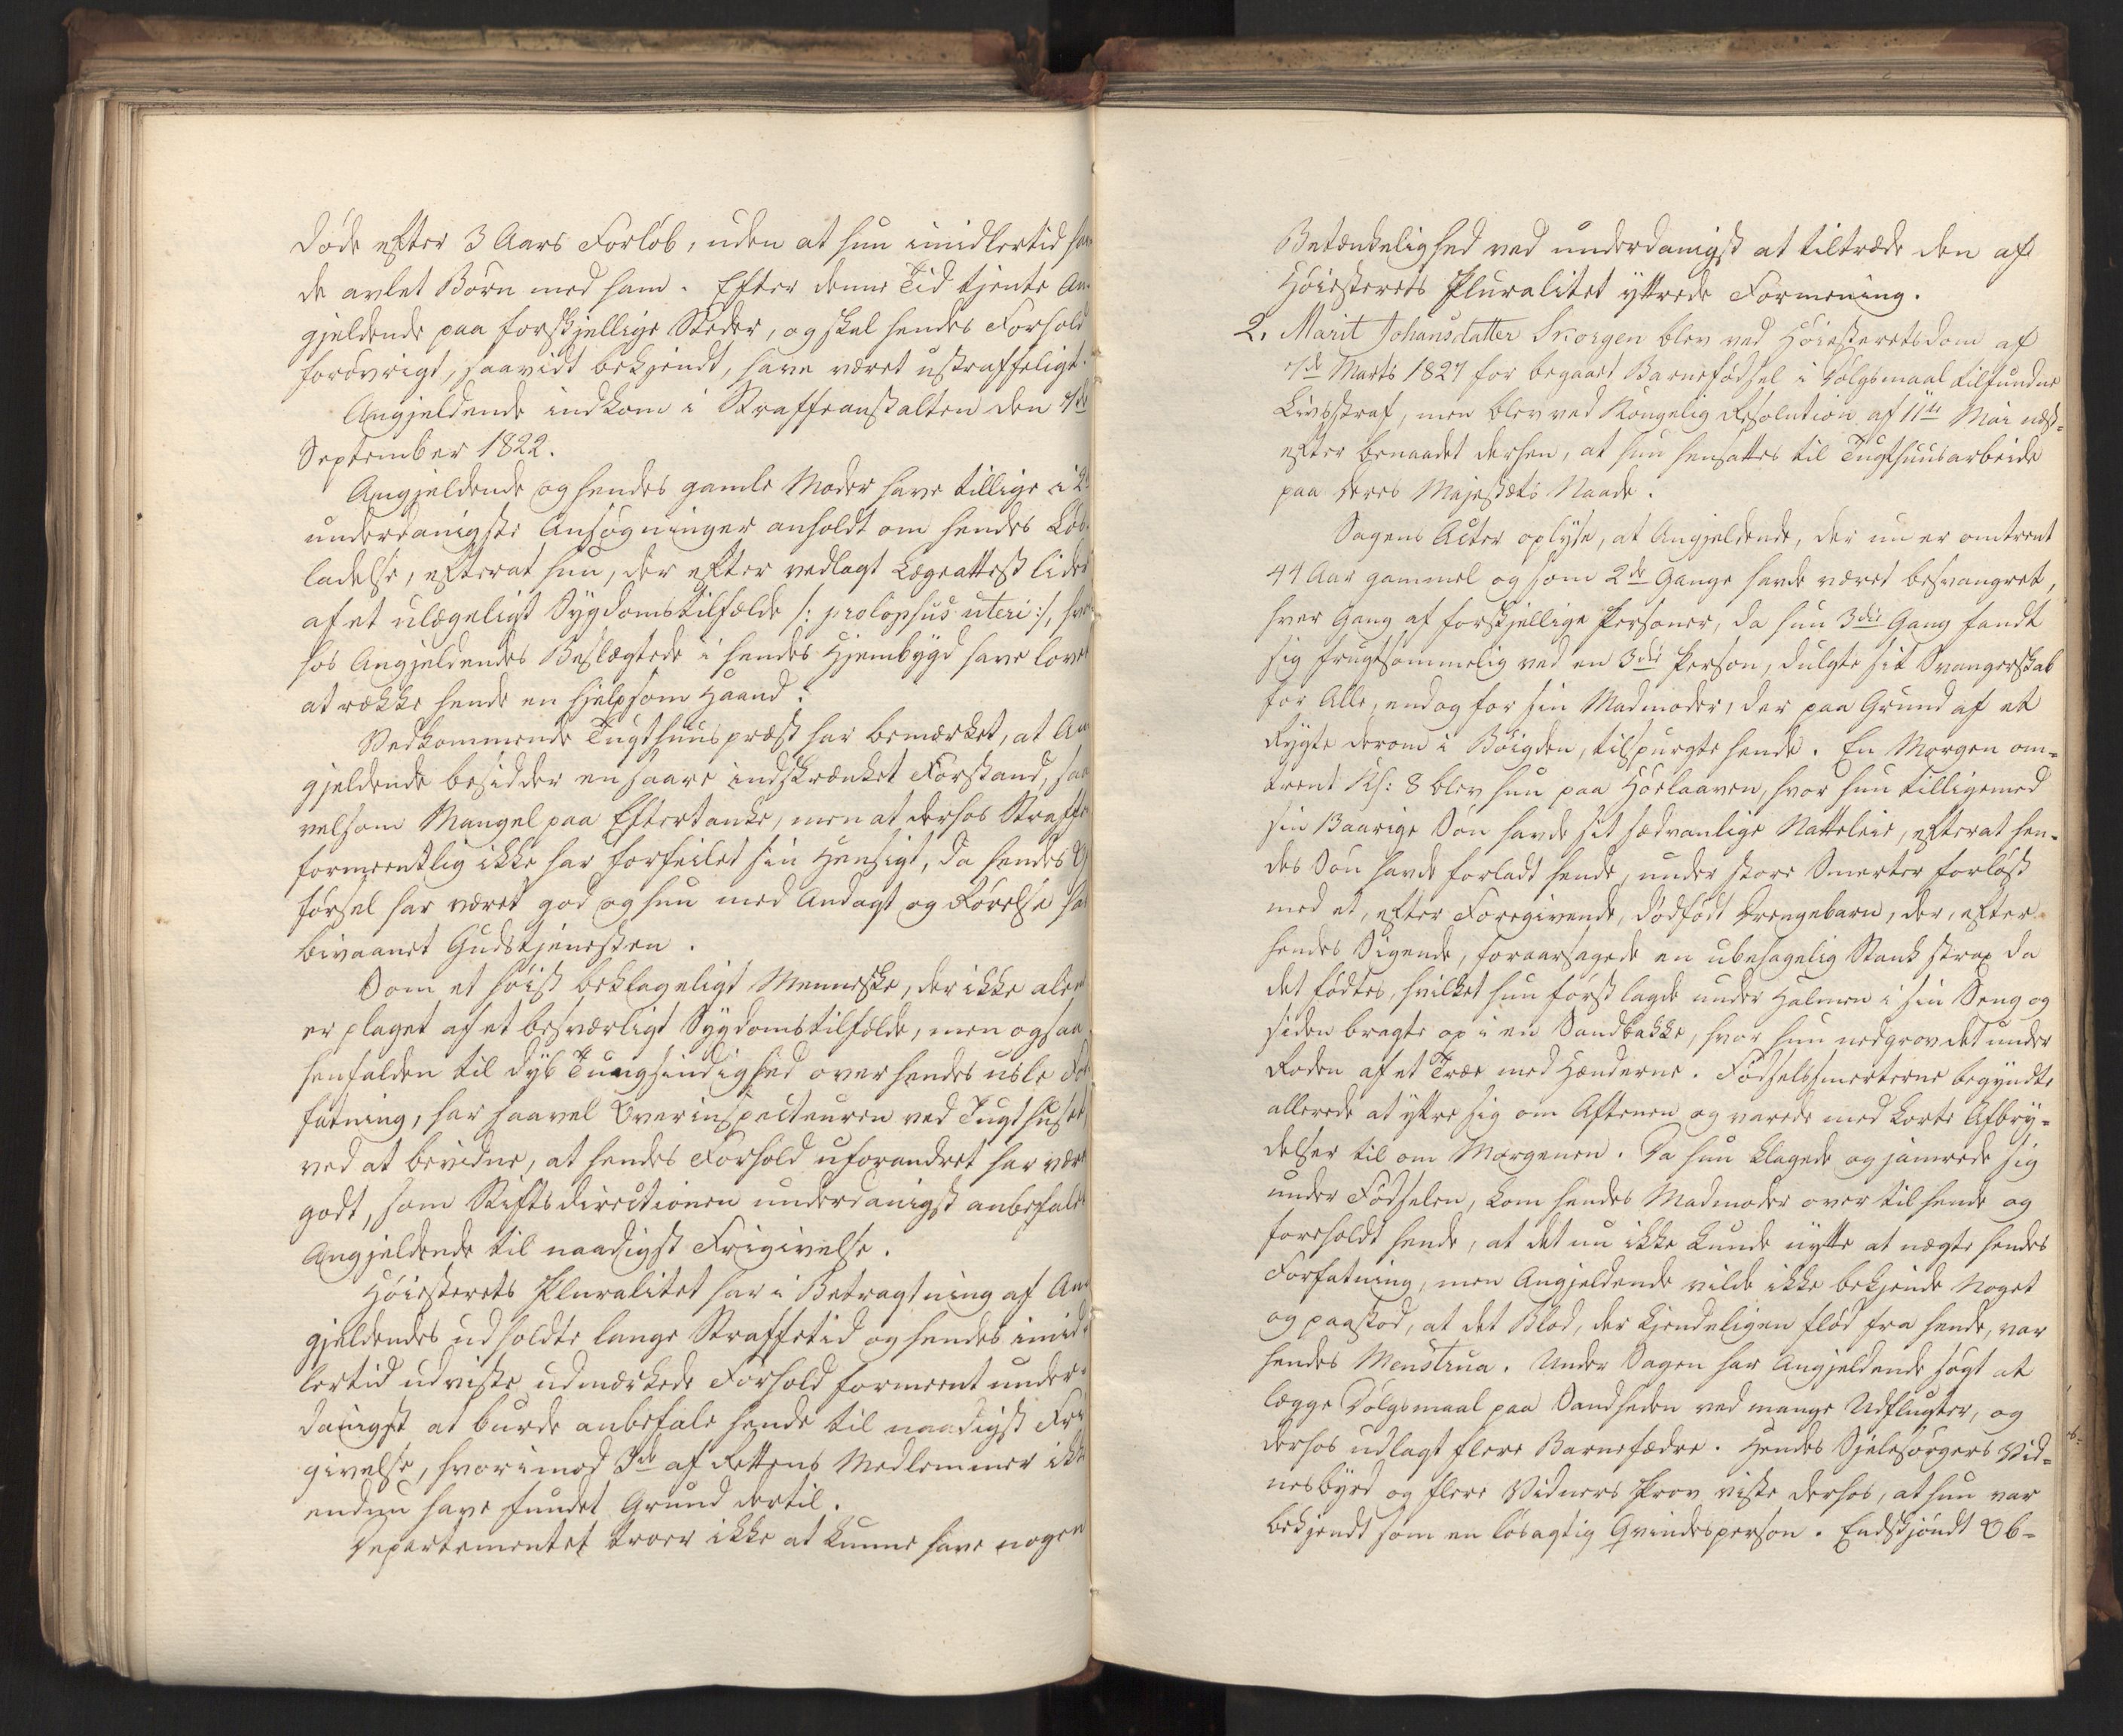 døde efter 3 Aars Forløb, uden at hun imidlertid hav
de avlet Børn med ham. Efter denne Tid tjente An
gjeldende paa forskjellige Steder, og skal hendes Forhold
forøvrigt, saavidt bekjendt, have været ustraffeligt.
Angjeldende indkom i Straffeanstalten den 7de
September 1822.
Angjeldende og hendes gamle Moder have tillige i 2
underdanigste Ansøgninger anholdt om hendes Løs
ladelse, efterat hun, der efter vedlagt Lægeattest lider
af et ulægeligt Sygdomstilfælde /: prolopsus uteri :/, hvor
hos Angjeldendes Beslægtede i hendes Hjembygd have lovet
at række hende en hjelpsom Haand.
Vedkommende Tugthuuspræst har bemærket, at An
gjeldende besidder en saare indskrænket Forstand, saa
velsom Mangel paa Eftertanke, men at derhos Straffen
formeentlig ikke har forfeilet sin Hensigt, da hendes Op
førsel har været god og hun med Andagt og Rørelse har
bivaanet Gudstjenesten.
Som et høist beklageligt Menneske, der ikke alene
er plaget af et besværligt Sygdomstilfælde, men ogsaa
henfalden til dyb Tungsindighed over hendes usle For
fatning, har saavel Overinspecteuren ved Tugthuset,
ved at bevidne, at hendes Forhold uforandret har været
godt, som Stiftsdirectionen underdanigst anbefalet
Angjeldende til naadigst Frigivelse.
Høiesterets Pluralitet har i Betragtning af An
gjeldendes udholdte lange Straffetid og hendes imid
lertid udviste udmærkede Forhold formeent under
danigst at burde anbefale hende til naadigst Fri
givelse, hvorimod 3de af Rettens Medlemmer ikke
endnu have fundet Grund dertil.
Departementet troer ikke at kunne have nogen
Betænkelighed ved underdanigst at tiltræde den af
Høiesterets Pluralitet yttrede Formening.
2. Marit Johansdatter Skorgen blev ved Høiesteretsdom af
7de Marts 1827 for begaaet Barnefødsel i Dølgsmaal tilfunden
Livsstraf, men blev ved Kongelig Resolution af 11te Mai næst-
efter benaadet derhen, at hun hensattes til Tugthuusarbeide
paa Deres Majestæts Naade.
Sagens Acter oplyse, at Angjeldende, der nu er omtrent
44 Aar gammel og som 2de Gange havde været besvangret,
hver Gang af forskjellige Personer, da hun 3die Gang fandt
sig frugtsommelig ved en 3die Person, dulgte sit Svangerskab
for Alle, endog for sin Madmoder, der paa Grund af et
Rygte derom i Bøigden, tilspurgte hende. En Morgen om-
trent Kl: 8 blev hun paa Høelaaven, hvor hun tilligemed
sin 13aarige Søn havde sit sædvanlige Natteleie, efterat hen-
des Søn havde forladt hende, under store Smerter forløst
med et, efter Foregivende, dødfødt Drengebarn, der, efter
hendes Sigende, foraarsagede en ubehagelig Stank strax da
det fødtes, hvilket hun først lagde under Halmen i sin Seng og
siden bragte op i en Sandbakke, hvor hun nedgrov det under
Roden af et Træe med Hænderne. Fødselssmerterne begyndte
allerede at yttre sig om Aftenen og varede med korte Afbry-
delser til om Morgenen. Da hun klagede og jamrede sig
under Fødselen, kom hendes Madmoder over til hende og
foreholdt hende, at det nu ikke kunde nytte at nægte hendes
Forfatning, men Angjeldende vilde ikke bekjende Noget
og paastod, at det Blod, der kjendeligen flød fra hende, var
hendes Menstrua. Under Sagen har Angjeldende søgt at
lægge Dølgsmaal paa Sandheden ved mange Udflugter, og
derhos udlagt flere Barnefædre. Hendes Sjelesørgers Vid-
nesbyrd og flere Vidners Prov viste derhos, at hun var
bekjendt som en løsagtig Qvindesperson. Endskjøndt Ob-